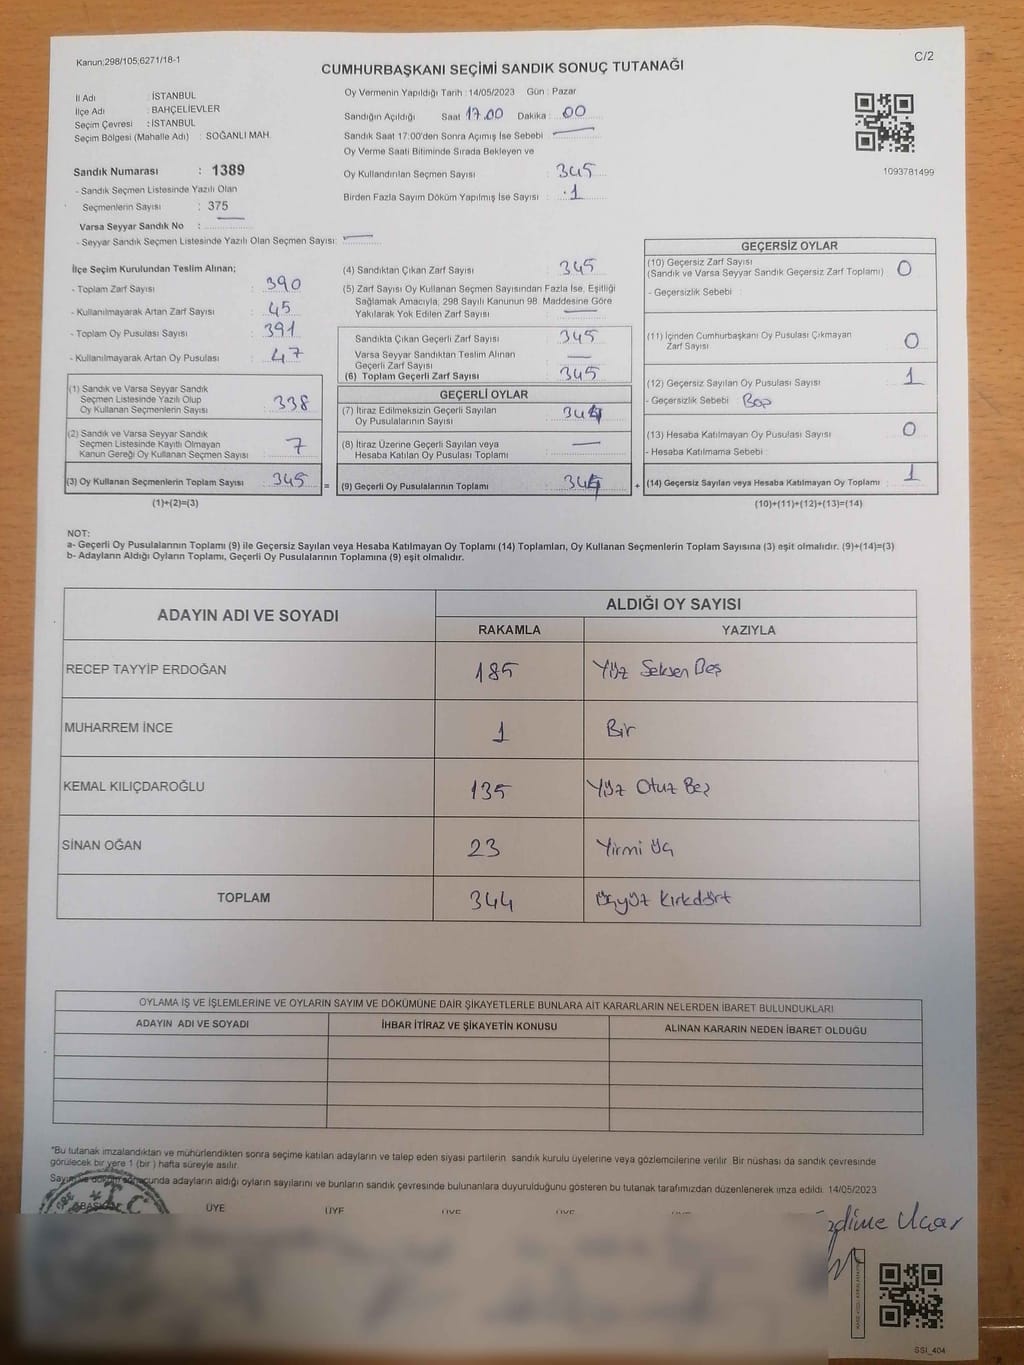 Kanun;298/105;6271/18-1
C/2
CUMHURBAŞKANI SEÇİMİ SANDIK SONUÇ TUTANAĞI
İl Adı : İSTANBUL
İlçe Adı : BAHÇELİEVLER
Seçim Çevresi : İSTANBUL
Seçim Bölgesi (Mahalle Adı) : SOĞANLI MAH.
Sandık Numarası : 1389
- Sandık Seçmen Listesinde Yazılı Olan
Seçmenlerin Sayısı : 375
Varsa Seyyar Sandık No :
- Seyyar Sandık Seçmen Listesinde Yazılı Olan Seçmen Sayısı:
Oy Vermenin Yapıldığı Tarih : 14/05/2023 Gün : Pazar
Sandığın Açıldığı Saat 17.00 Dakika : 00
Sandık Saat 17:00'den Sonra Açımış İse Sebebi
Oy Verme Saati Bitiminde Sırada Bekleyen ve
Oy Kullandırılan Seçmen Sayısı : 345
Birden Fazla Sayım Döküm Yapılmış İse Sayısı : 1
1093781499
İlçe Seçim Kurulundan Teslim Alınan;
- Toplam Zarf Sayısı : 390
- Kullanılmayarak Artan Zarf Sayısı : 45
- Toplam Oy Pusulası Sayısı : 391
- Kullanılmayarak Artan Oy Pusulası : 47
(1) Sandık ve Varsa Seyyar Sandık
Seçmen Listesinde Yazılı Olup
Oy Kullanan Seçmenlerin Sayısı : 338
(2) Sandık ve Varsa Seyyar Sandık
Seçmen Listesinde Kayıtlı Olmayan
Kanun Gereği Oy Kullanan Seçmen Sayısı : 7
(3) Oy Kullanan Seçmenlerin Toplam Sayısı : 345
(1)+(2)=(3)
(4) Sandıktan Çıkan Zarf Sayısı : 345
(5) Zarf Sayısı Oy Kullanan Seçmen Sayısından Fazla İse, Eşitliği
Sağlamak Amacıyla, 298 Sayılı Kanunun 98. Maddesine Göre
Yakılarak Yok Edilen Zarf Sayısı :
Sandıkta Çıkan Geçerli Zarf Sayısı : 345
Varsa Seyyar Sandıktan Teslim Alınan
Geçerli Zarf Sayısı :
(6) Toplam Geçerli Zarf Sayısı : 345
GEÇERLİ OYLAR
(7) İtiraz Edilmeksizin Geçerli Sayılan
Oy Pusulalarının Sayısı : 344
(8) İtiraz Üzerine Geçerli Sayılan veya
Hesaba Katılan Oy Pusulası Toplamı :
= (9) Geçerli Oy Pusulalarının Toplamı : 344
GEÇERSİZ OYLAR
(10) Geçersiz Zarf Sayısı
(Sandık ve Varsa Seyyar Sandık Geçersiz Zarf Toplamı) : 0
- Geçersizlik Sebebi :
(11) İçinden Cumhurbaşkanı Oy Pusulası Çıkmayan
Zarf Sayısı : 0
(12) Geçersiz Sayılan Oy Pusulası Sayısı : 1
- Geçersizlik Sebebi : Boş
(13) Hesaba Katılmayan Oy Pusulası Sayısı : 0
- Hesaba Katılmama Sebebi :
+ (14) Geçersiz Sayılan veya Hesaba Katılmayan Oy Toplamı : 1
(10)+(11)+(12)+(13)=(14)
NOT:
a- Geçerli Oy Pusulalarının Toplamı (9) ile Geçersiz Sayılan veya Hesaba Katılmayan Oy Toplamı (14) Toplamları, Oy Kullanan Seçmenlerin Toplam Sayısına (3) eşit olmalıdır. (9)+(14)=(3)
b- Adayların Aldığı Oyların Toplamı, Geçerli Oy Pusulalarının Toplamına (9) eşit olmalıdır.
ADAYIN ADI VE SOYADI
ALDIĞI OY SAYISI
RAKAMLA YAZIYLA
RECEP TAYYİP ERDOĞAN 185 Yüz Seksen Beş
MUHARREM İNCE 1 Bir
KEMAL KILIÇDAROĞLU 135 Yüz Otuz Beş
SİNAN OĞAN 23 Yirmi üç
TOPLAM 344 Üçyüz Kırkdört
OYLAMA İŞ VE İŞLEMLERİNE VE OYLARIN SAYIM VE DÖKÜMÜNE DAİR ŞİKAYETLERLE BUNLARA AİT KARARLARIN NELERDEN İBARET BULUNDUKLARI
ADAYIN ADI VE SOYADI İHBAR İTİRAZ VE ŞİKAYETİN KONUSU ALINAN KARARIN NEDEN İBARET OLDUĞU
*Bu tutanak imzalandıktan ve mühürlendikten sonra seçime katılan adayların ve talep eden siyasi partilerin sandık kurulu üyelerine veya gözlemcilerine verilir. Bir nüshası da sandık çevresinde
görülecek bir yere 1 (bir ) hafta süreyle asılır.
Sayım ve döküm sonucunda adayların aldığı oyların sayılarını ve bunların sandık çevresinde bulunanlara duyurulduğunu gösteren bu tutanak tarafımızdan düzenlenerek imza edildi. 14/05/2023
BAŞKAN ÜYE ÜYE ÜYE ÜYE
T.C.
Uçar
SSI_404